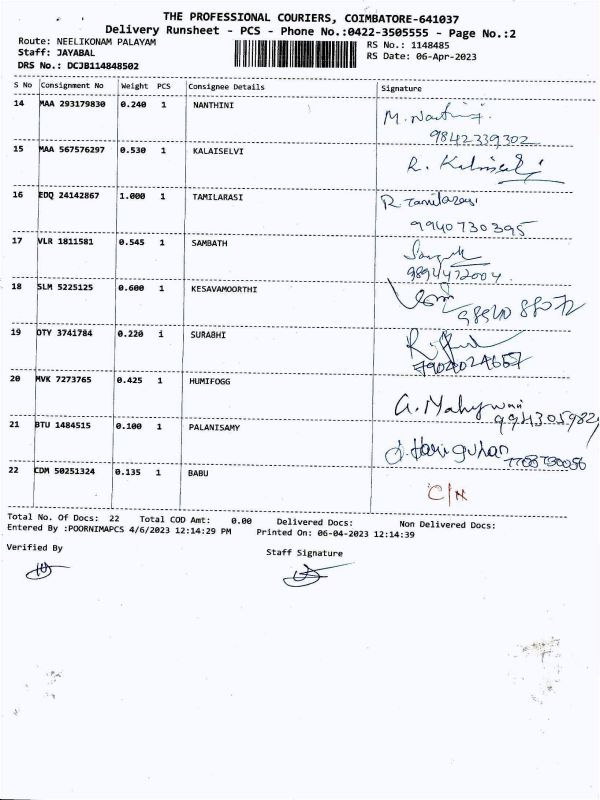 THE PROFESSIONAL COURIERS, COIMBATORE-641037
Delivery Runsheet - PCS - Phone No.:0422-3505555 - Page No.:2
Route: NEELIKONAM PALAYAM
RS No.: 1148485
Staff: JAYABAL
RS Date: 06-Apr-2023
DRS No.: DCJB114848502
S No Consignment No Weight PCS Consignee Details Signature
14 MAA 293179830 0.240 1 NANTHINI
9842339302
15 MAA 567576297 0.530 1 KALAISELVI
16 EDQ 24142867 1.000 1 TAMILARASI R Tamilarasi
9940730395
17 VLR 1811581 0.545 1 SAMBATH
9894472004
18 SLM 5225125 0.600 1 KESAVAMOORTHI
19 OTY 3741784 0.220 1 SURABHI
20 MVK 7273765 0.425 1 HUMIFOGG
21 BTU 1484515 0.100 1 PALANISAMY
22 CDM 50251324 0.135 1 BABU
Total No. Of Docs: 22 Total COD Amt: 0.00 Delivered Docs: Non Delivered Docs:
Entered By :POORNIMAPCS 4/6/2023 12:14:29 PM Printed On: 06-04-2023 12:14:39
Verified By
Staff Signature